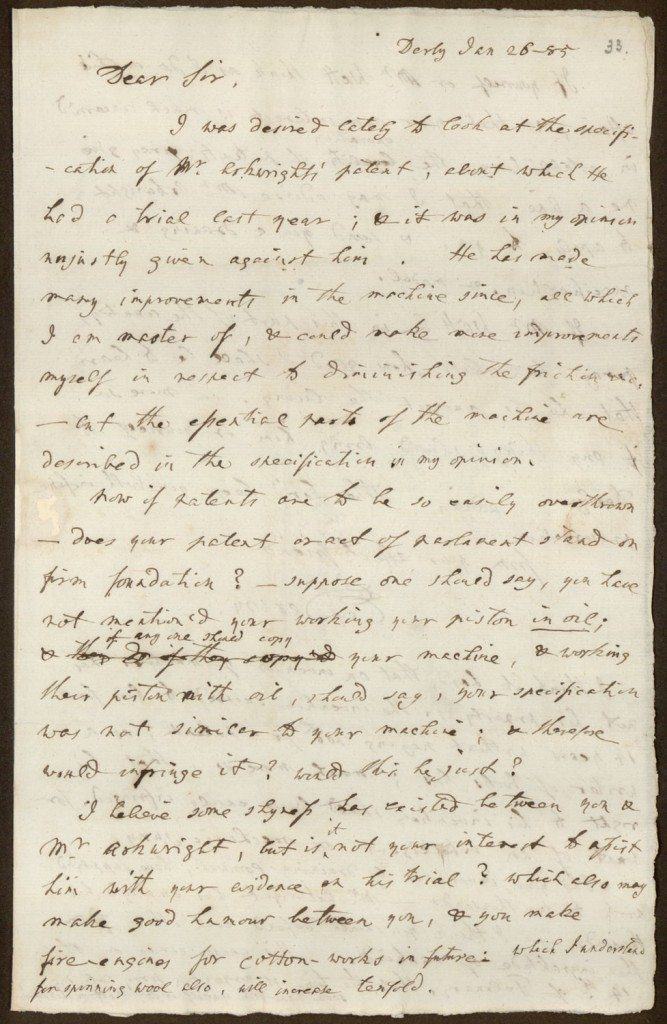 Derby Jan 26-85
33.
Dear Sir,
I was desired lately to look at the specifi-
-cation of Mr. Arkwrights' patent, about which He
had a trial last year; & it was in my opinion
unjustly given against him. He has made
many improvements in the machine since, all which
I am master of, & could make more improvements
myself in respect to diminishing the friction
- but the essential parts of the machine are
described in the specification in my opinion.
Now if patents are to be so easily overthrown
- does your patent or act of parlament stand on
firm foundation? - suppose one should say, you have
not mention'd your working your piston in oil;
if any one shoud copy
& your machine, & working
their piston with oil, should say, your specification
was not similar to your machine; & therefore
would infringe it? would this be just?
I believe some shyness has existed between you &
Mr Arkwright, but is it not your interest to assist
him with your evidence on his trial? which also may
make good humour between you, & you make
fire-engines for cotton-works in future: which I understand
for spinning wool also, will increase tenfold.